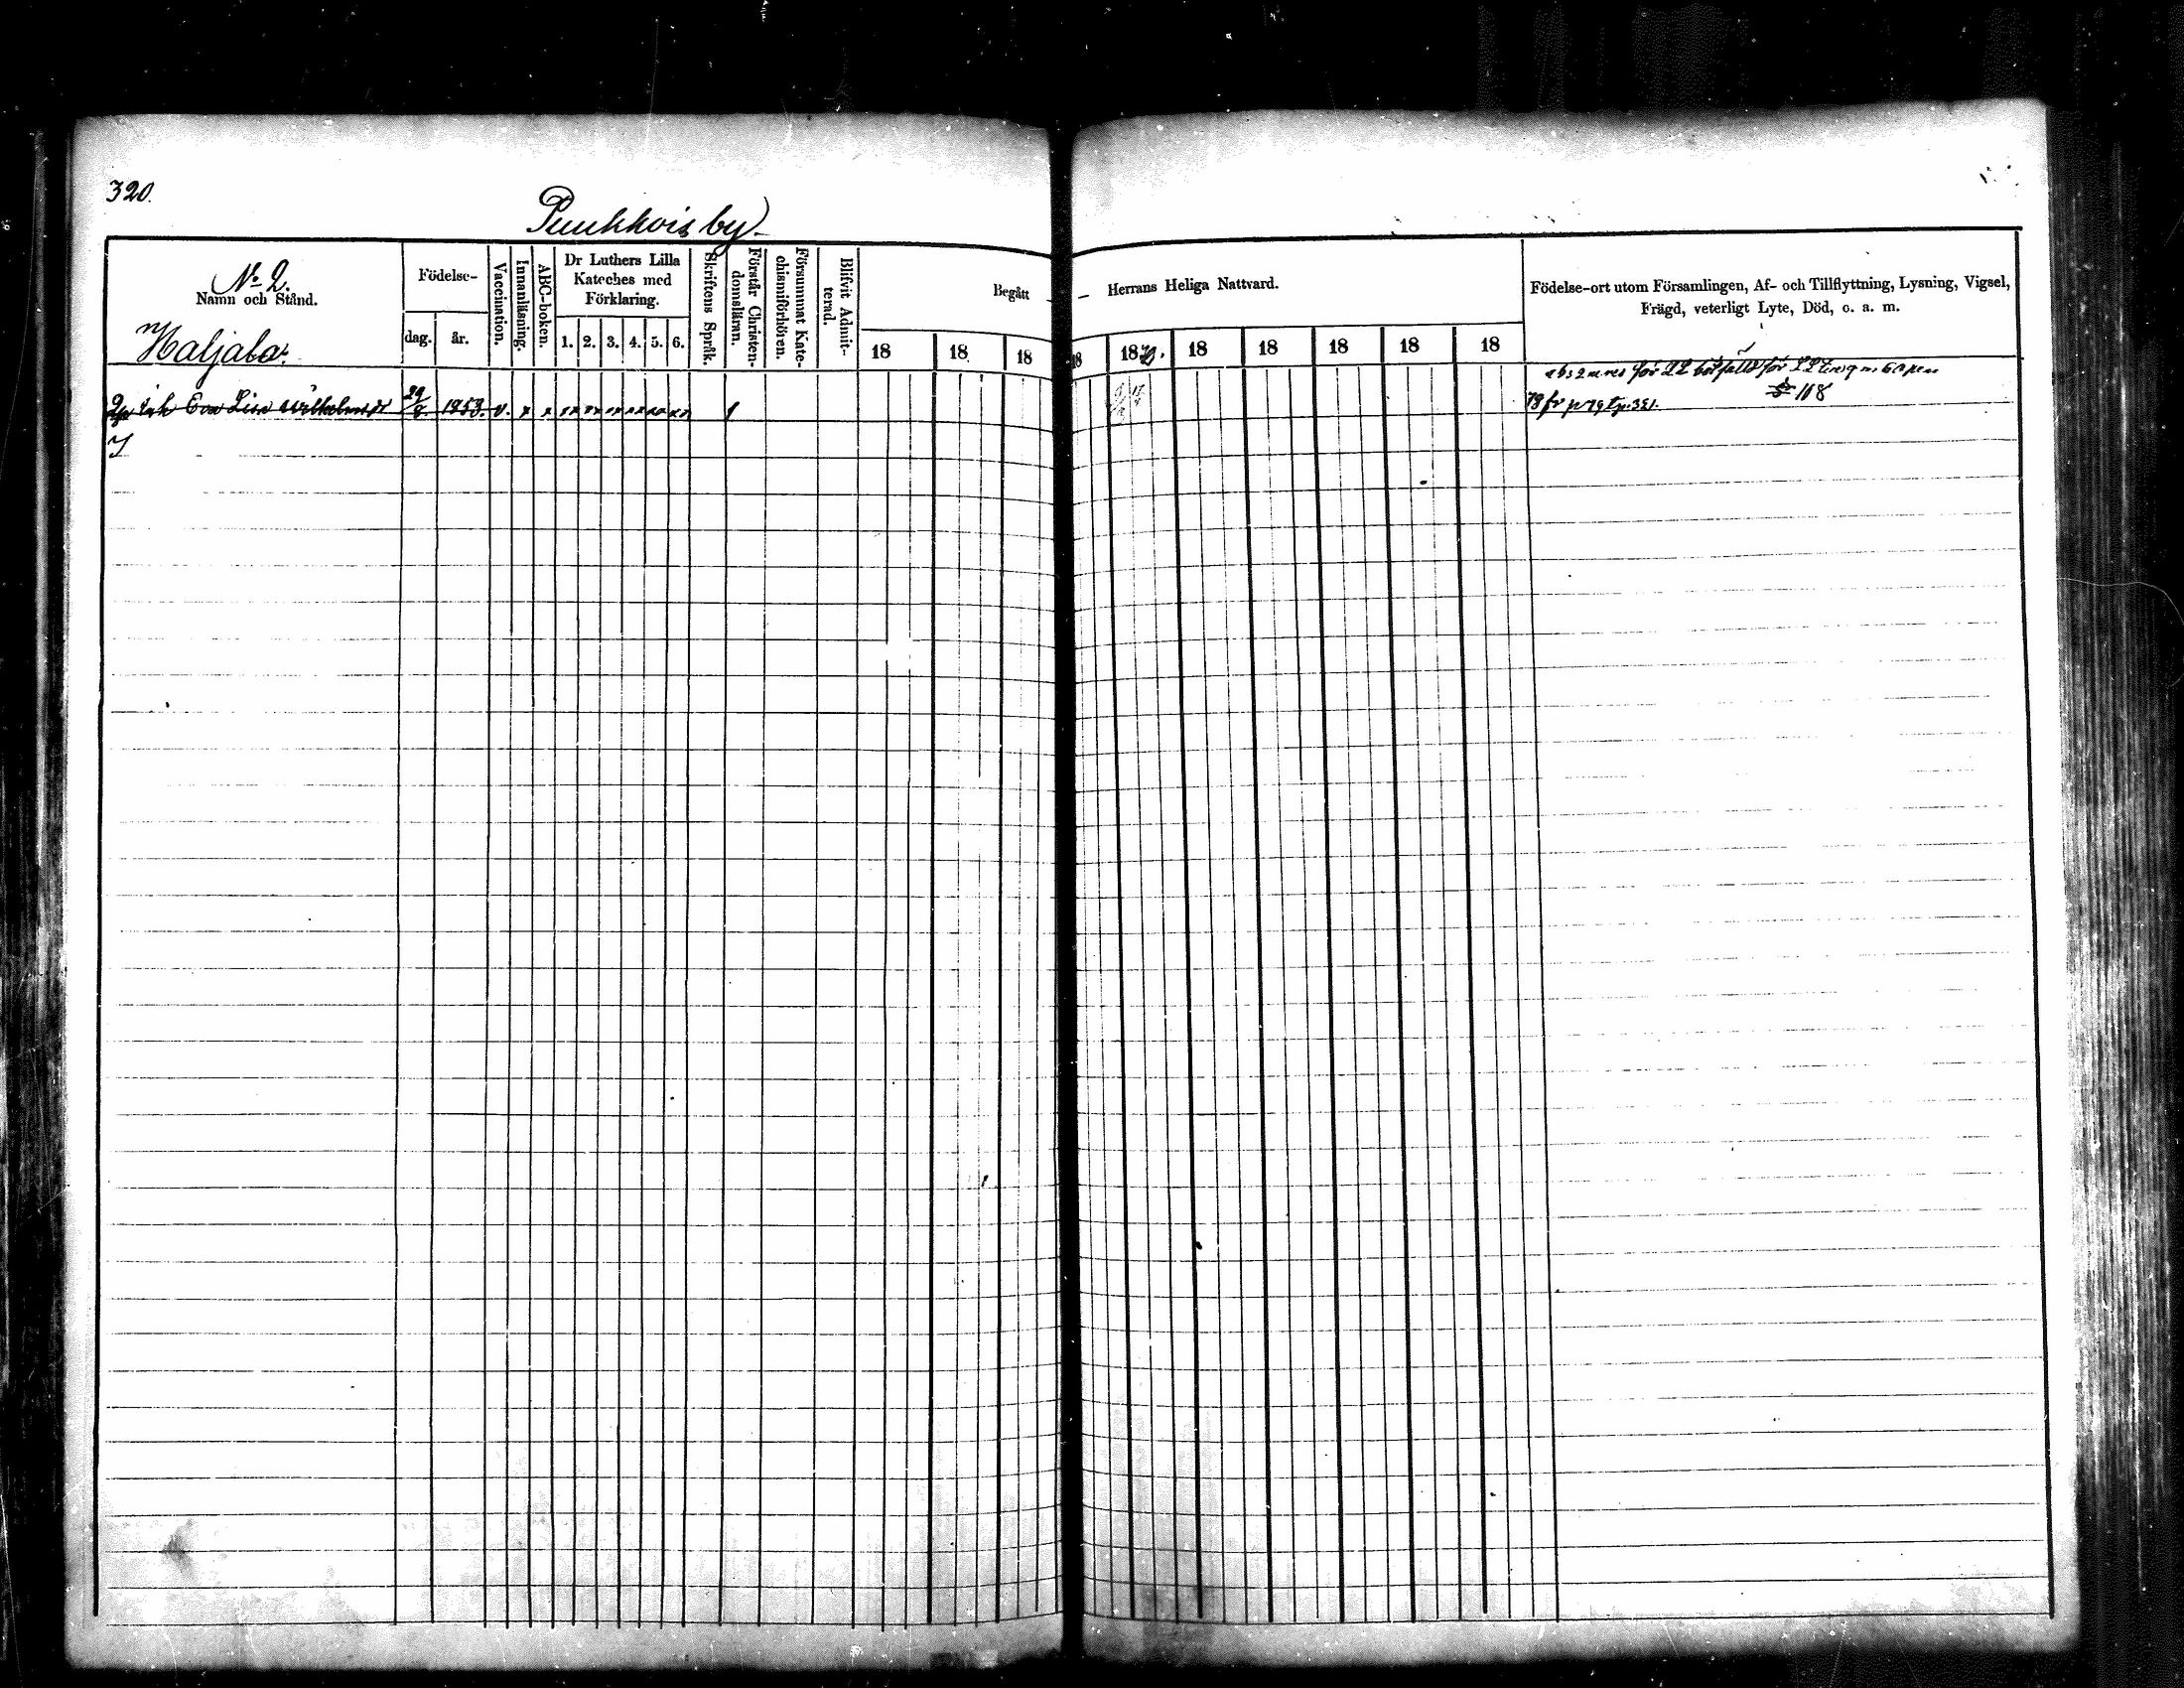 320.
Puukkois by
No 2.
Namn och Stånd.
Haljala.
Födelse-
dag.
år.
Vaccination.
Innanläsning.
ABC-boken.
Dr Luthers Lilla
Kateches med
Förklaring.
1. 2. 3. 4. 5. 6.
Skriftens Språk.
Förstår Christen-
domsläran.
Försummat Kate-
chismiförhören.
Blifvit Admit-
terad.
Begått — — Herrans Heliga Nattvard.
18 18 18 18 1870. 18 18 18 18 18
Födelse-ort utom Församlingen, Af- och Tillflyttning, Lysning, Vigsel,
Frägd, veterligt Lyte, Död, o. a. m.
Eva Lisa Wilhelmsdr 29/8. 1853. v. x x xx xx xx xx xx xx
för LL bötfälld för LL
118
78 fr p 79 t p. 321.